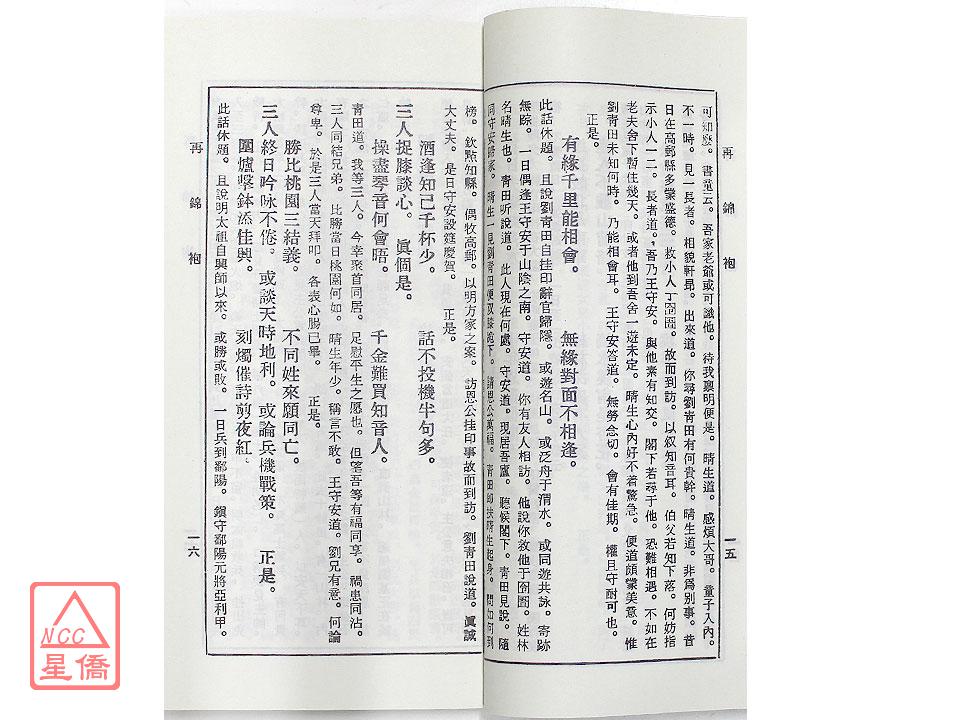 再錦袍
一五
可知麽。書童云。吾家老爺或可識他。待我稟明便是。晴生道。感煩大哥。童子入內。
不一時。見一長者。相貌軒昂。出來道。你尋劉青田有何貴幹。晴生道。非爲別事。昔
日在高郵縣多蒙盛德。救小人于囹圄。故而到訪。以叙知音耳。伯父若知下落。何妨指
示小人一二。長者道。吾乃王守安。與他素有知交。閣下若尋于他。恐難相遇。不如在
老夫舍下暫住幾天。或者他到吾舍一遊未定。晴生心內好不着驚急。便道頗蒙美意。惟
劉青田未知何時。乃能相會耳。王守安答道。無勞念切。會有佳期。權且守耐可也。
正是。
有緣千里能相會。　無緣對面不相逢。
此話休題。且說劉青田自挂印辭官歸隱。或遊名山。或泛舟于渭水。或同遊共詠。寄跡
無踪。一日偶逢王守安于山陰之南。守安道。你有友人相訪。他說你救他于囹圄。姓林
名晴生也。青田听說道。此人現在何處。守安道。現居吾廬。聽候閣下。青田見說。隨
同守安歸家。晴生一見劉青田便双膝跪下。請恩公萬福。青田卽扶晴生起身。問如何到
榜。欽點知縣。偶牧高郵。以明方家之案。訪恩公挂印事故而到訪。劉青田說道。眞誠
大丈夫。是日守安設筵慶賀。　正是。
酒逢知己千杯少。　話不投機半句多。
三人捉膝談心。眞個是。
操盡琴音何會晤。　千金難買知音人。
青田道。我等三人。今幸聚首同居。足慰平生之愿也。但望吾等有福同享。禍患同沾。
三人同結兄弟。比勝當日桃園何如。晴生年少。稱言不敢。王守安道。劉兄有意。何論
尊卑。於是三人當天拜叩。各表心腸已畢。　正是。
勝比桃園三結義。　不同姓來願同亡。
三人終日吟咏不倦。或談天時地利。或論兵機戰策。　正是。
圍爐擊鉢添佳興。　刻燭催詩剪夜紅。
此話休題。且說明太祖自興師以來。或勝或敗。一日兵到鄱陽。鎮守鄱陽元將亞利甲。
再錦袍
一六
NCC
星僑